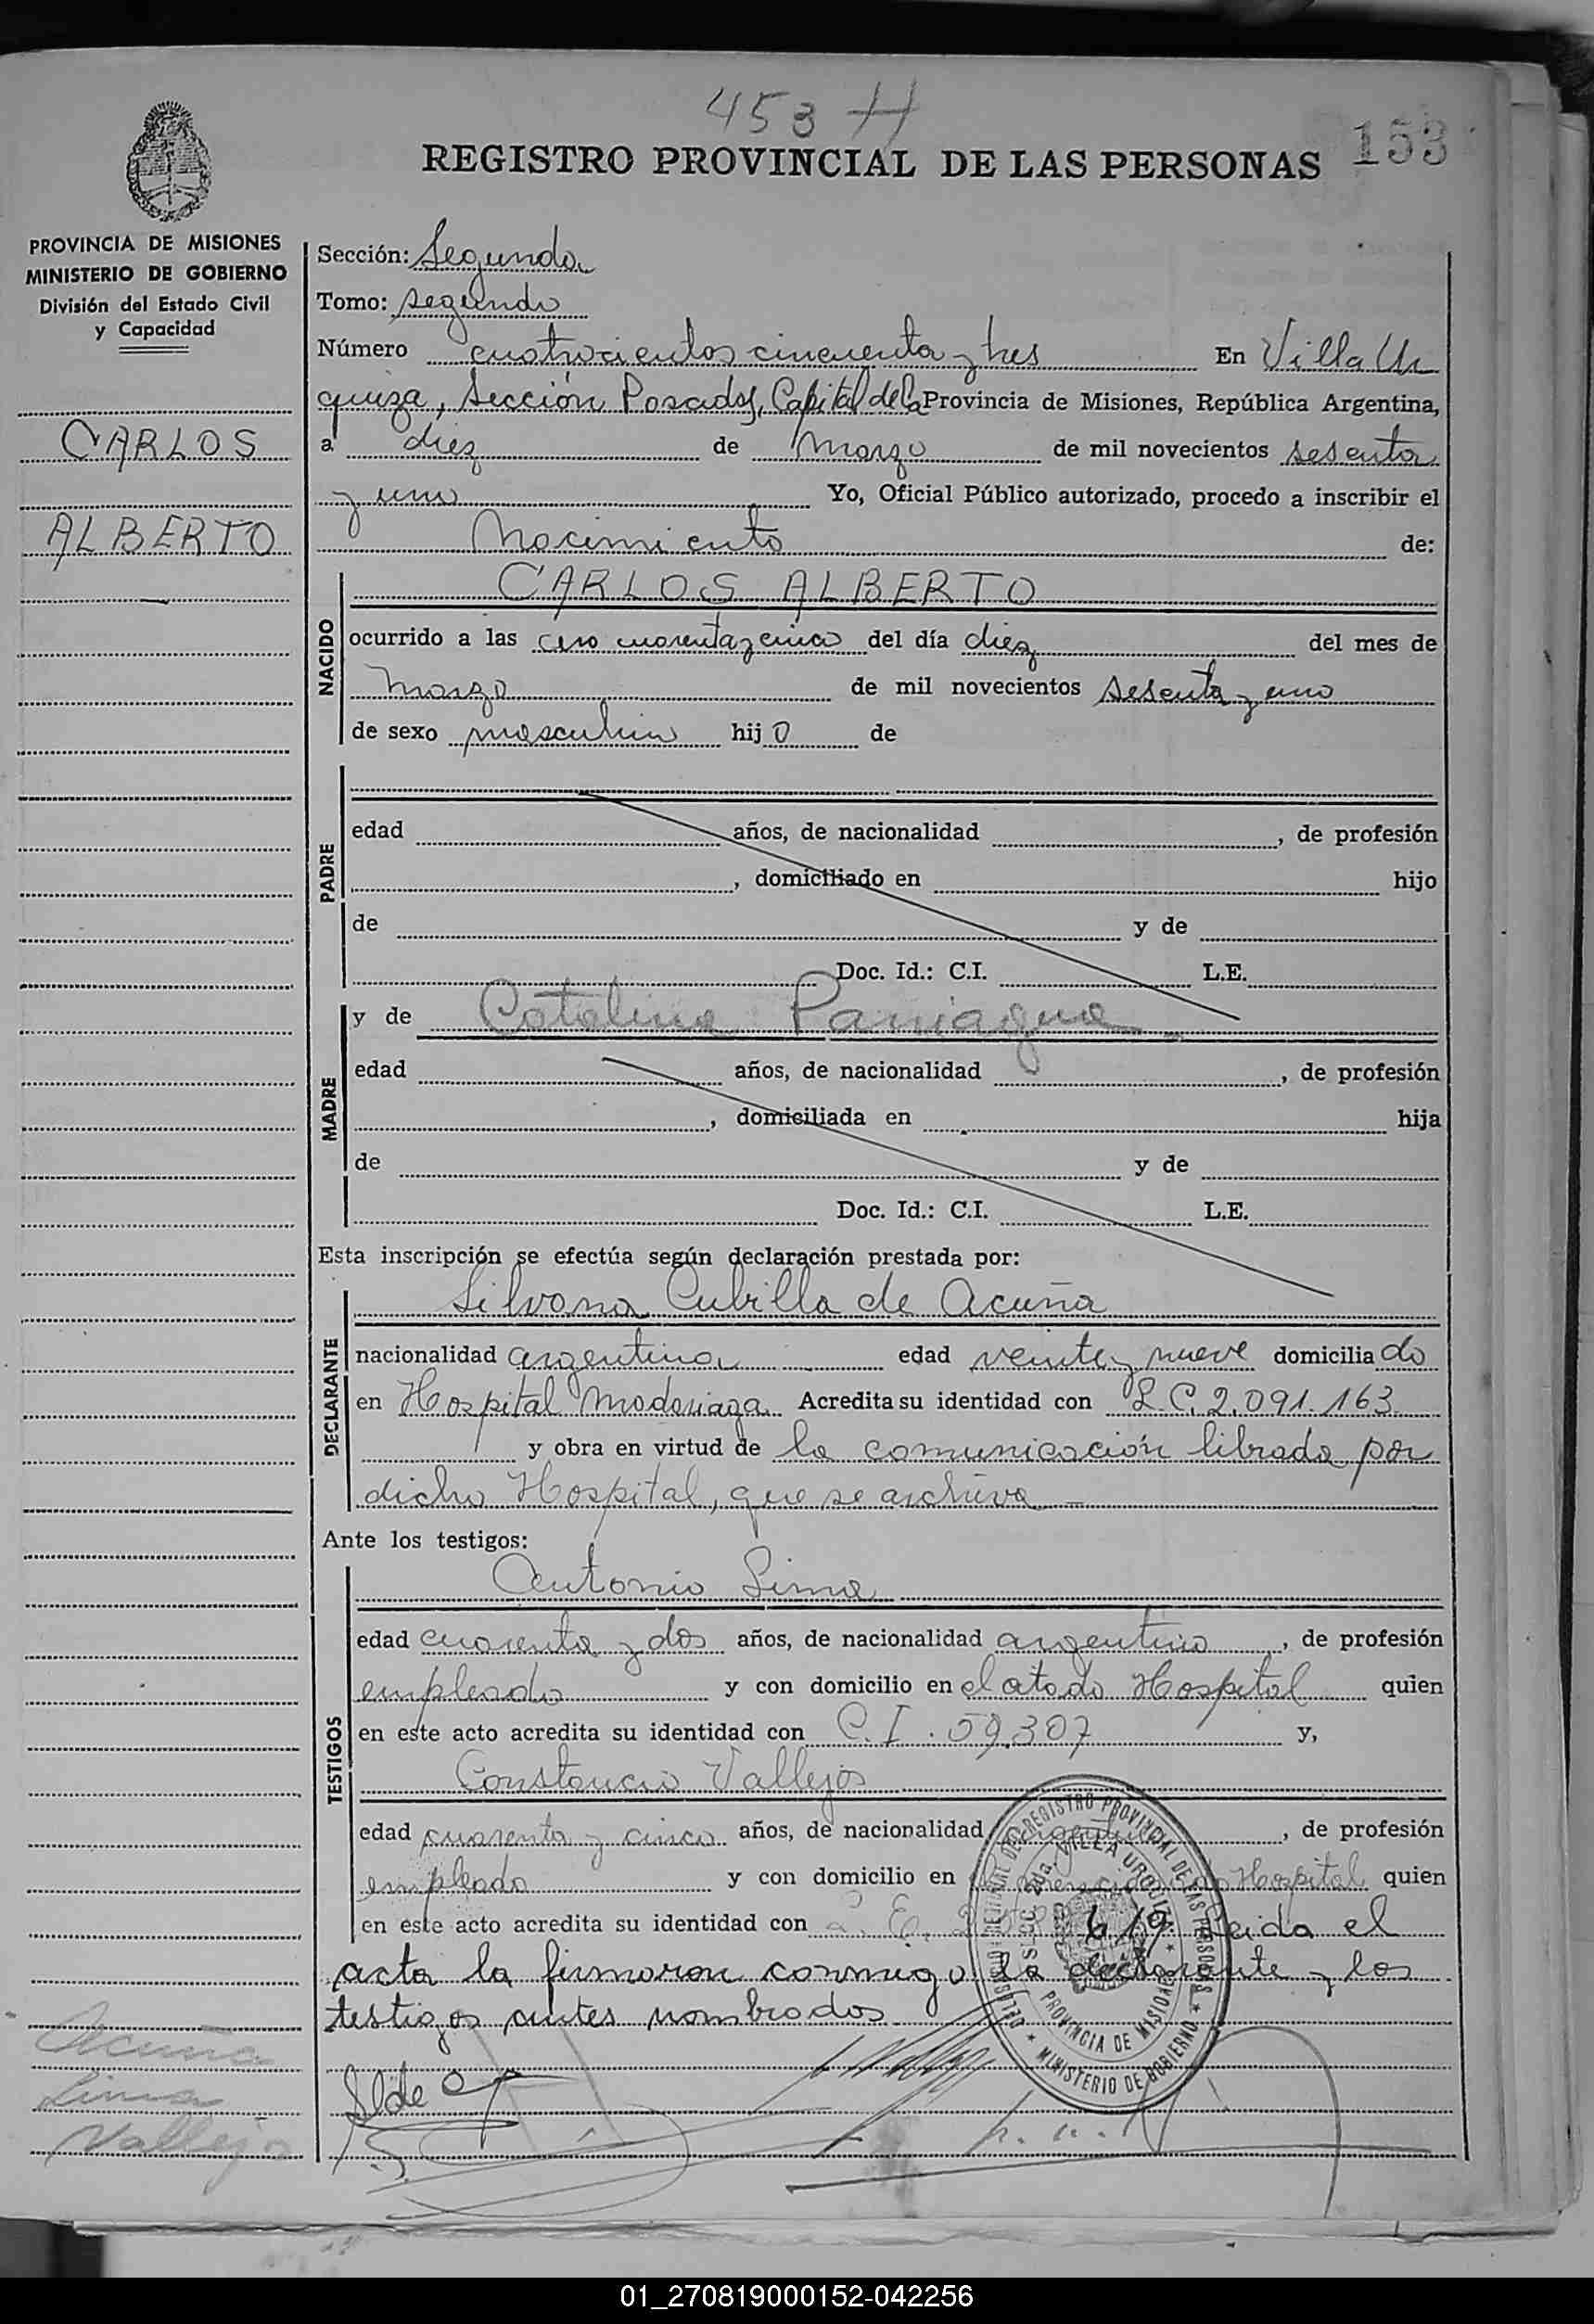 453 H
REGISTRO PROVINCIAL DE LAS PERSONAS 153
PROVINCIA DE MISIONES
MINISTERIO DE GOBIERNO
División del Estado Civil
y Capacidad
CARLOS
ALBERTO
Sección: Segunda
Tomo: segundo
Número cuatrocientos cincuenta y tres En Villa Ur
quiza, Sección Posadas, Capital de la Provincia de Misiones, República Argentina,
a diez de Marzo de mil novecientos sesenta
y uno Yo, Oficial Público autorizado, procedo a inscribir el
Nacimiento de:
NACIDO
CARLOS ALBERTO
ocurrido a las cero cuarenta y cinco del día diez del mes de
Marzo de mil novecientos sesenta y uno
de sexo masculino hijo de
PADRE
edad años, de nacionalidad , de profesión
, domiciliado en hijo
de y de
Doc. Id.: C.I. L.E.
MADRE
y de Catalina Paniagua
edad años, de nacionalidad , de profesión
, domiciliada en hija
de y de
Doc. Id.: C.I. L.E.
Esta inscripción se efectúa según declaración prestada por:
DECLARANTE
Silvana Cubilla de Acuña
nacionalidad argentina edad veinte y nueve domiciliado
en Hospital Madariaga Acredita su identidad con L.C. 2.091.163
y obra en virtud de la comunicación librada por
dicho Hospital, que se archiva
Ante los testigos:
TESTIGOS
Antonio Lima
edad cuarenta y dos años, de nacionalidad argentino , de profesión
empleado y con domicilio en el atado Hospital quien
en este acto acredita su identidad con C.I. 59.307 y,
Constancio Vallejos
edad cuarenta y cinco años, de nacionalidad argentino , de profesión
empleado y con domicilio en Hospital quien
en este acto acredita su identidad con L.E. 619 Leida el
acta la firmaron conmigo la declarante y los
testigos antes nombrados
REGISTRO PROVINCIAL DE LAS PERSONAS
MINISTERIO DE GOBIERNO
Secc. 2da. VILLA URQUIZA
PROVINCIA DE MISIONES
Acuña
Lima
Vallejo
S. de
01_270819000152-042256